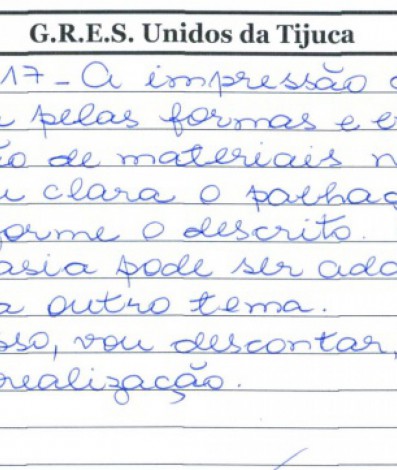 G.R.E.S. Unidos da Tijuca
17 - A impressão
pelas formas e
de materiais
clara o palhaç
forme o descrito.
asia pode ser ada
a outro tema.
sso, vou descontar,
realização.